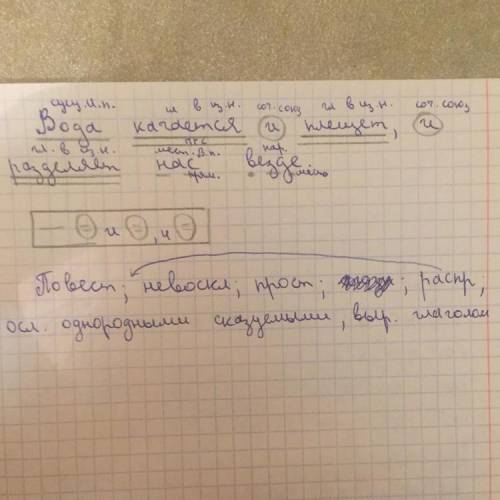 сущ. И.п. гл в из.н. соч. союз гл в из.н. соч. союз
Вода качается и плещет, и
гл. в из.н. мест. В.п. нар.
разделяет нас везде.
прям. места
— = и =, и =
Повест; невоскл; прост; распр;
осл. однородными сказуемыми, выр. глаголом